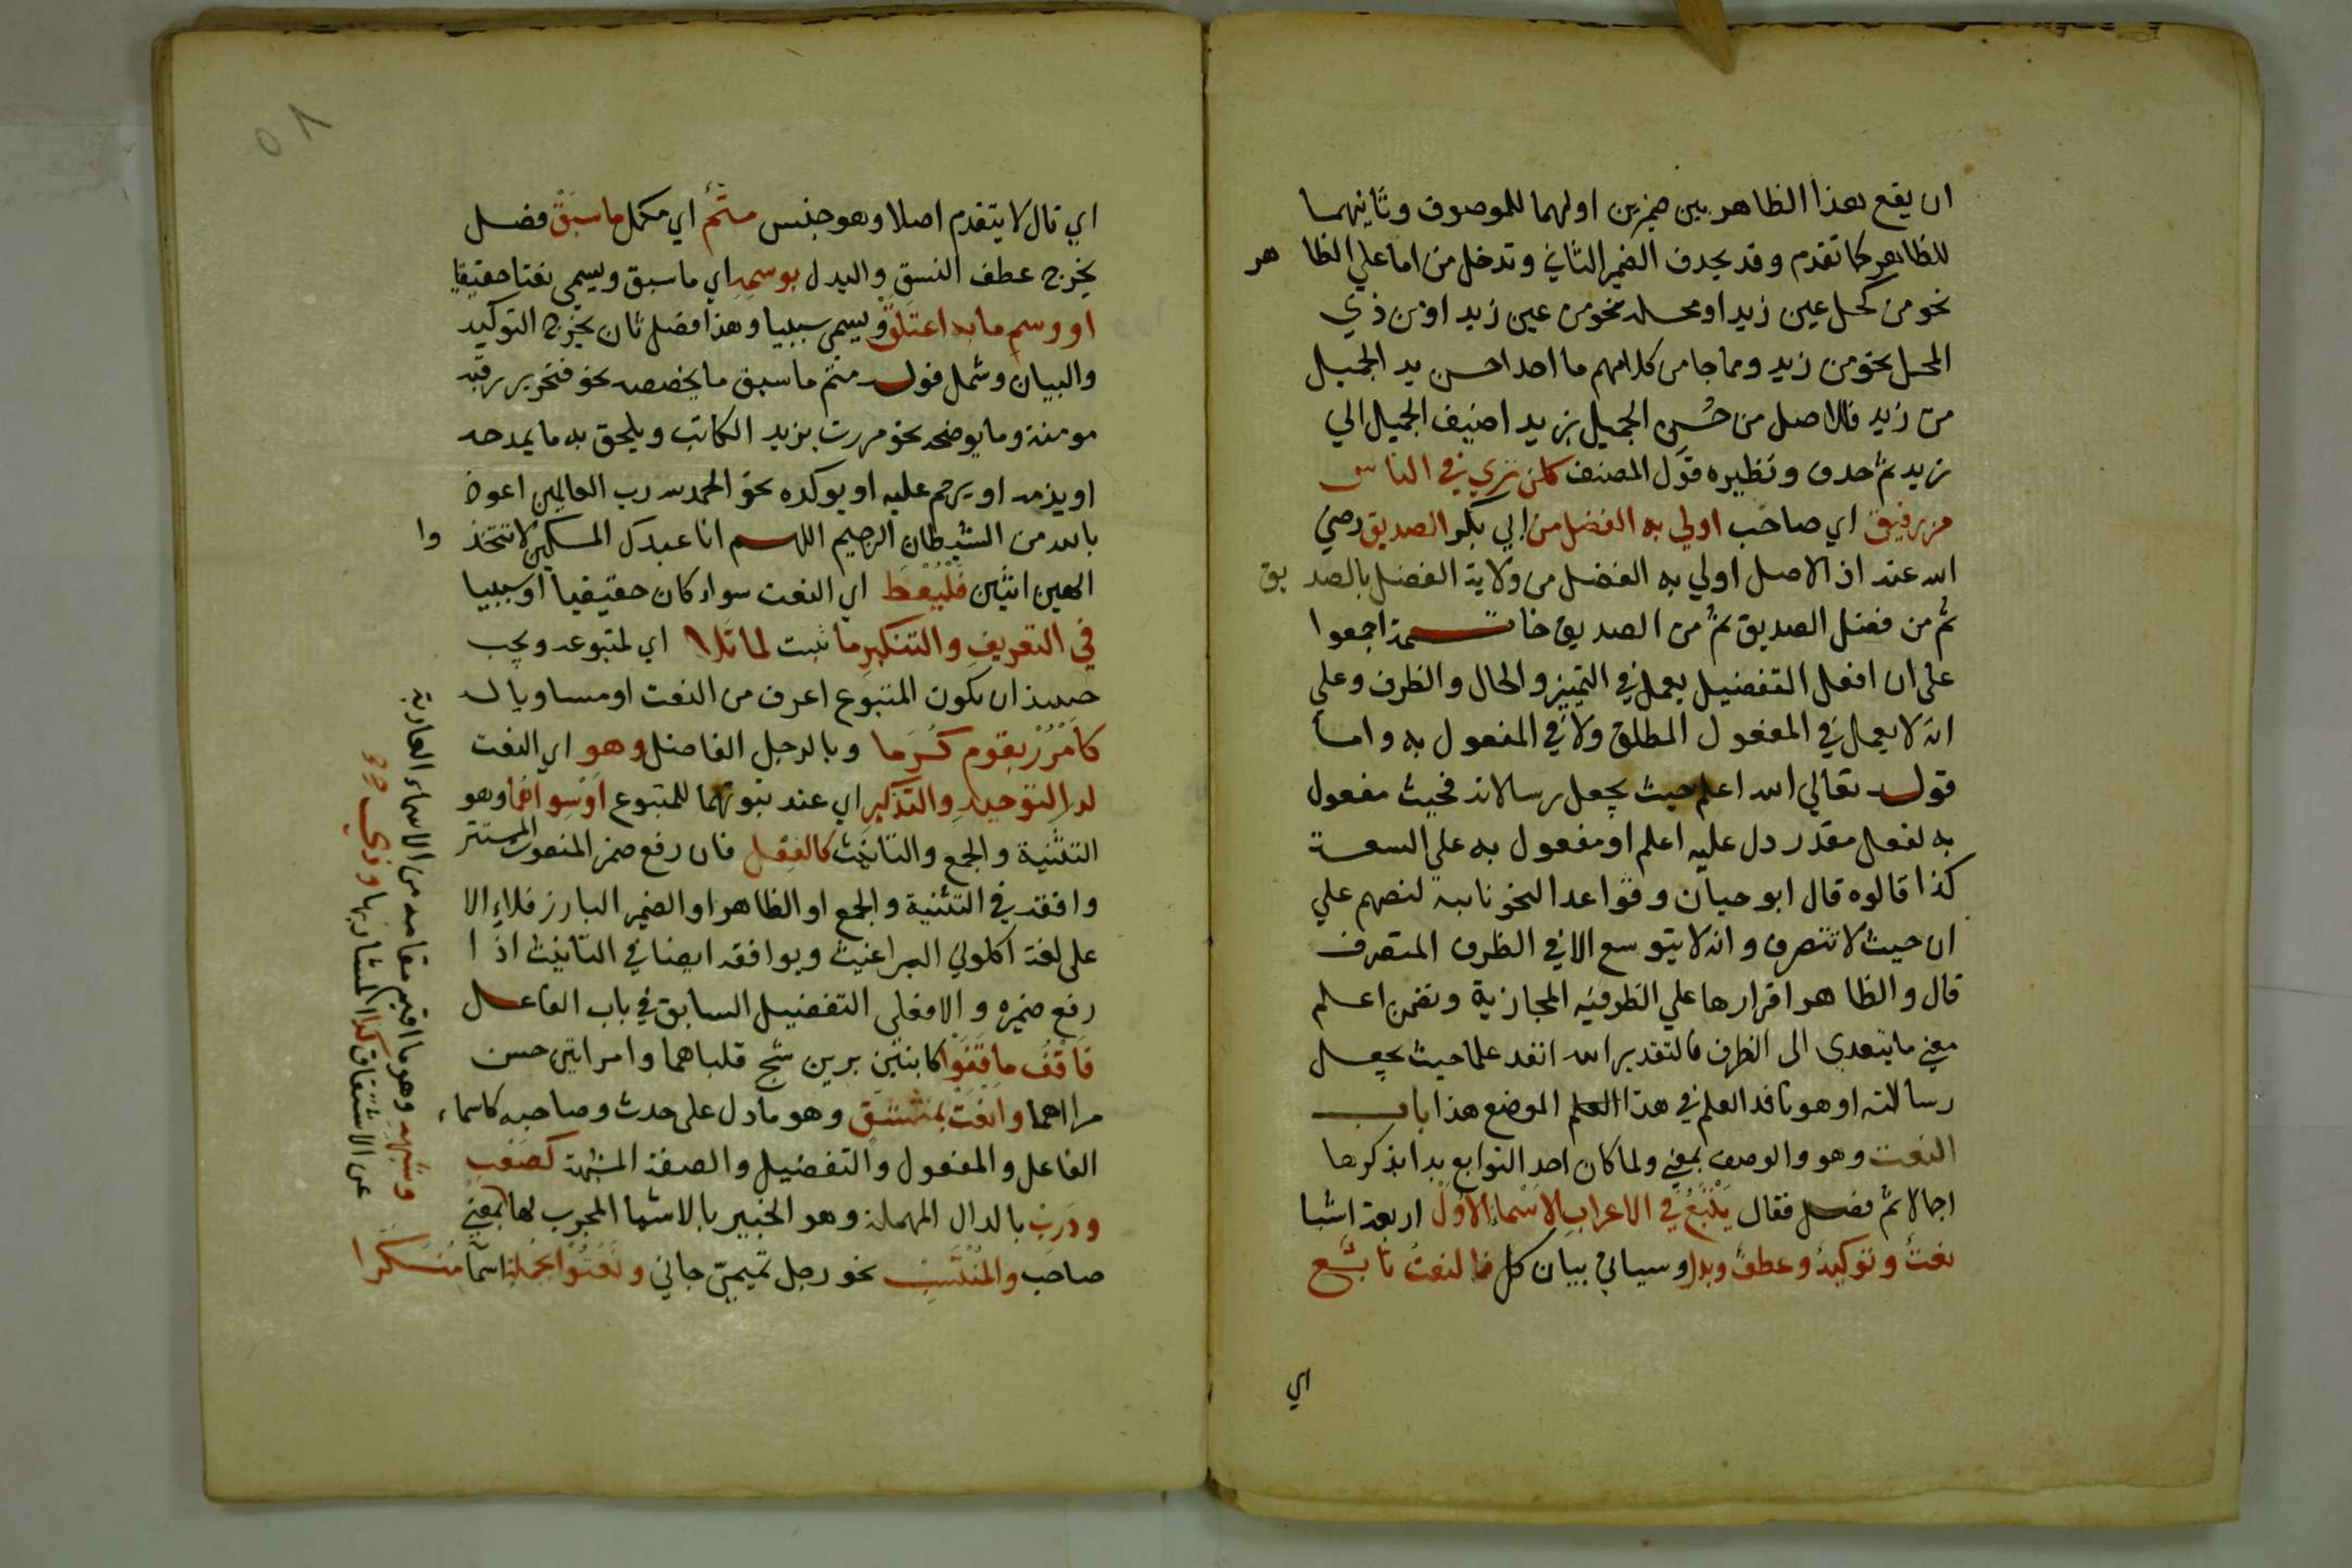 ان يقع هذا الظاهر بين ضميرين اولهما للموصوف وثانيهما
للظاهر كما تقدم وقد يحذف الضمير الثاني وتدخل من اما علي الظا هر
نحو من كحل عين زيد او محله نحو من عين زيد او من ذي
المحل نحو من زيد ومما جا من كلامهم ما احد احسن به الجميل
من زيد فالاصل من حُسنِ الجميل بزيد اضيف الجميل الي
زيد ثم حذف ونظيره قول المصنف كلن تري في الناس
من رفيق اي صاحب اولي به الفضل من ابي بكر الصديق رضي
الله عنه اذ الاصل اولي به الفضل من ولاية الفضل بالصد يق
ثم من فضل الصديق ثم من الصديق خاتمة اجمعوا
على ان افعل التفضيل يعمل في التمييز والحال والظرف وعلي
انه لا يعمل في المفعول المطلق ولا في المفعول به واما
قوله تعالي الله اعلم حيث يجعل رسالاته فحيث مفعول
به لفعل مقدر دل عليه اعلم او مفعول به علي السعة
كذا قالوه قال ابو حيان وقواعد النحو تابيه لنصهم علي
ان حيث لا تتصرف وانه لا يتوسع الا في الظرف المتصرف
قال والظاهر اقرارها علي الظرفيه المجازية وتضمن اعلم
معني ما يتعدي الى الظرف فالتقدير الله انفد علما حيث يجعل
رسالاته او هو نافد العلم في هذا العلم الموضع هذا باب
النعت وهو والوصف بمعني ولما كان احد التوابع بدا بذكرها
اجمالا ثم فصل فقال يَتْبَعُ في الاعرابِ الاَسْماءَ الاُولْ اربعة اشيا
نعتٌ وتوكيدٌ وعطفٌ وبدل وسياتي بيان كل فالنعتُ تابعٌ
اي
اي تال لا يتقدم اصلا وهو جنس متمٌّ اي مكمل ما سبقْ فصل
يخرج عطف النسق والبدل بوسمِهِ اي ما سبق ويسمى نعتا حقيقيا
او وسمِ ما به اعتلقْ ويسمى سببيا وهذا فصل ثان يخرج التوكيد
والبيان وشمل قوله متم ما سبق ما يخصصه نحو فتحرير رقبه
مومنة وما يوضحه نحو مررت بزيد الكاتب ويلحق به ما يمدحه
او يذمه او يرحم عليه او يوكده نحو الحمد لله رب العالمين اعوذ
بالله من الشيطان الرجيم اللهم انا عبدك المسكين لا تتخذ وا
الهين اثنين فَلْيُعْطَ اي النعت سواء كان حقيقيا او سببيا
في التعريفِ والتنكيرِ ما ثبت لما تلا اي لمتبوعه ويجب
حينيذ ان يكون المتبوع اعرف من النعت او مساويا له
كامْرُرْ بقوم كُرَما وبالرجل الفاضل وهو اي النعت
لدى التوحيدِ والتذكيرِ اي عند ثبوتهما للمتبوع اوْ سِواهُما وهو
التثنية والجمع والتانيث كالفِعْلِ فان رفع ضمير المنعوت المستتر
وافقه في التثنية والجمع او الظاهر او الضمير البارز فلا الا
على لغة اكلوني البراغيث ويوافقه ايضا في التانيث اذ ا
رفع ضميره والا فعلى التفصيل السابق في باب الفاعل
فَاقْفُ ما قَفَوْا كابنتين برين شج قلباهما وامراتين حسن
مراهما وانعَتْ بمشتقٍّ وهو ما دل على حدث وصاحبه كاسماء
الفاعل والمفعول والتفضيل والصفة المشبهة كصَعْبٍ
وذَرِبْ بالدال المهملة وهو الخبير بالاشيا المجرب لها بمعني
صاحب والمُنْتَسِبْ نحو رجل تميميّ جاني ونَعَتُوا بجملةٍ اسما مُنَكَّرا
وشبهِهِ وهو ما اقيم مقامه من الاسماء العارية
عن الاشتقاق كذا المشار بها وذي
٥٨